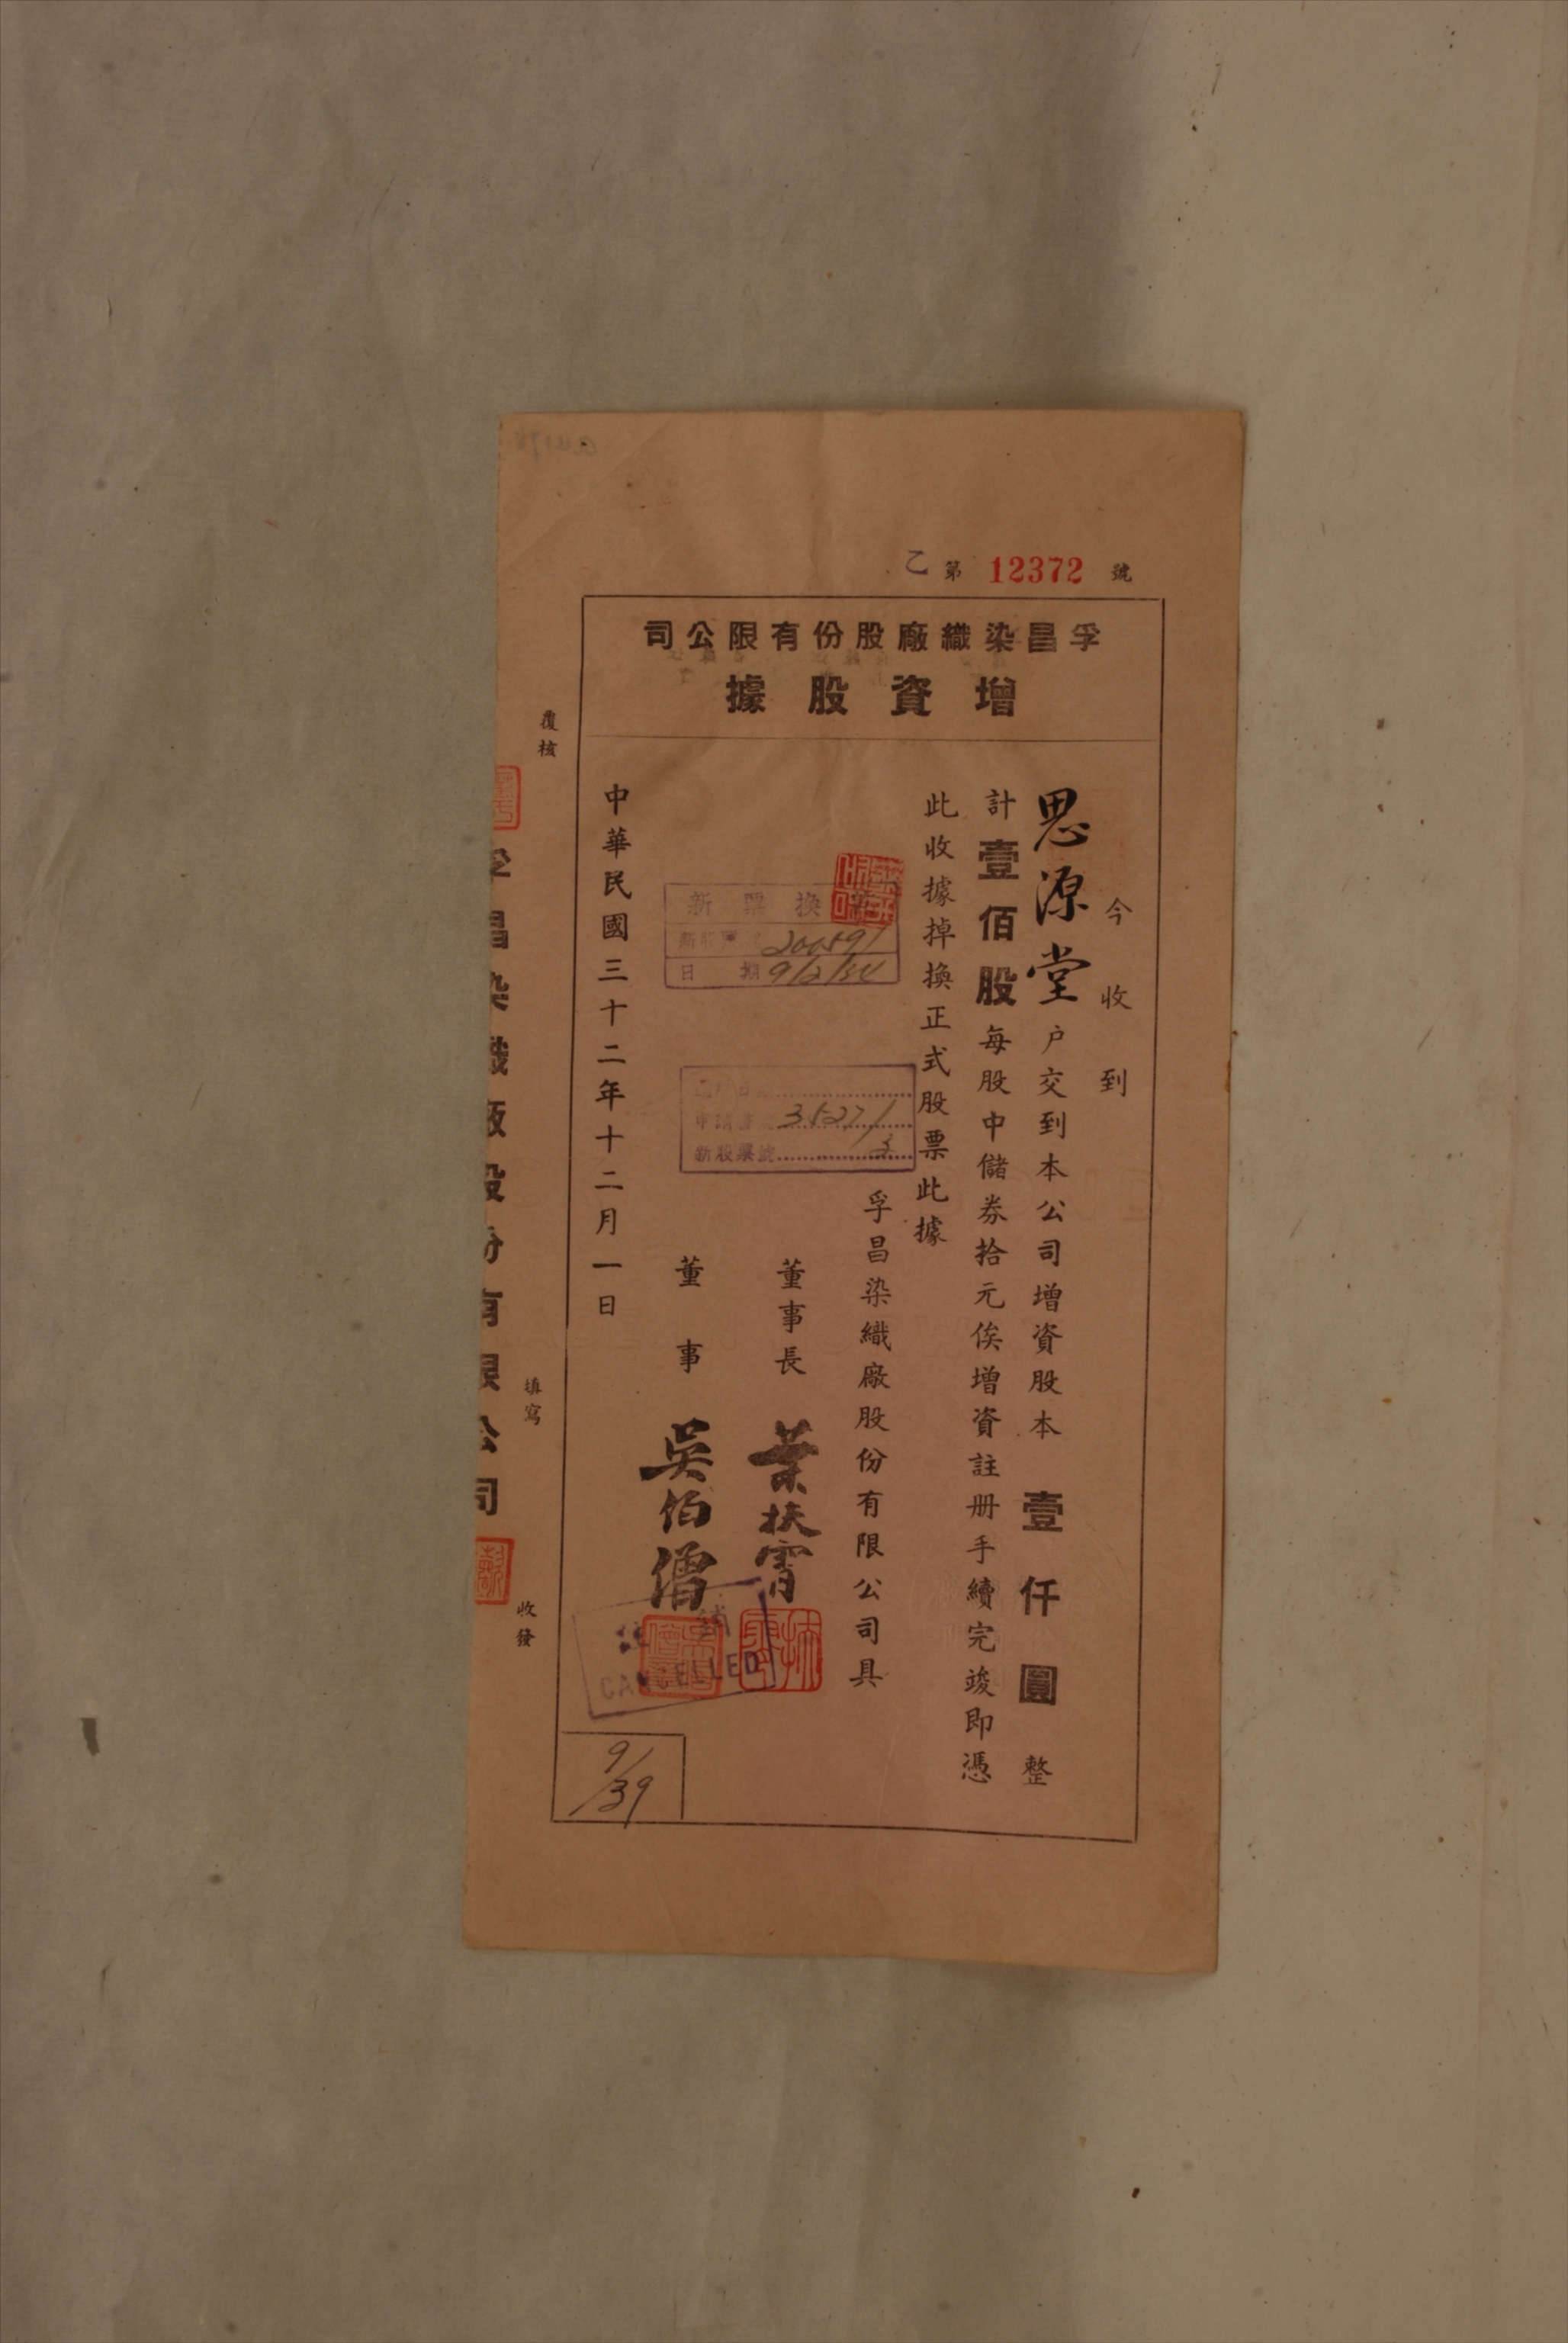 乙第 12372 號
孚昌染織廠股份有限公司
增資股據
今收到
思源堂户交到本公司增資股本壹仟圓整
計壹佰股每股中儲券拾元俟增資註册手續完竣即憑
此收據掉換正式股票此據
孚昌染織廠股份有限公司具
董事長 葉扶霄
董事 吳伯僧
中華民國三十二年十二月一日
新票換
新股票 200591
日期 9/2/34
申請書 35271
新股票號 3
註銷
CANCELLED
9/39
覆核
填寫
收發
孚昌染織廠股份有限公司